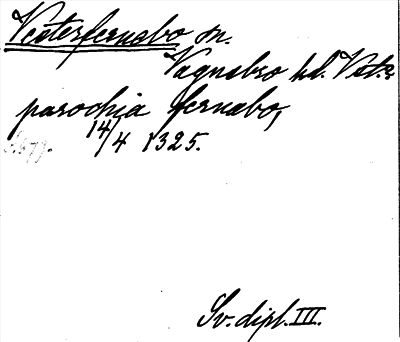 Vesterfernabo sn.
Vagnsbro hd. Vstm.
parochia fernabo,
14/4 1325.
Sv. dipl. III.